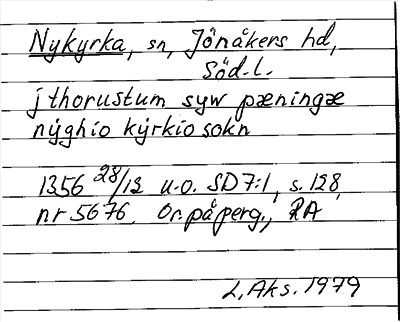 Nykyrka, sn, Jönåkers hd,
Söd.l.
j thorustum syw pæningæ
nyghio kyrkio sokn
1356 28/12 u.o. SD7:1, s.128,
nr 5676. Or.på perg., RA
L.Aks. 1979